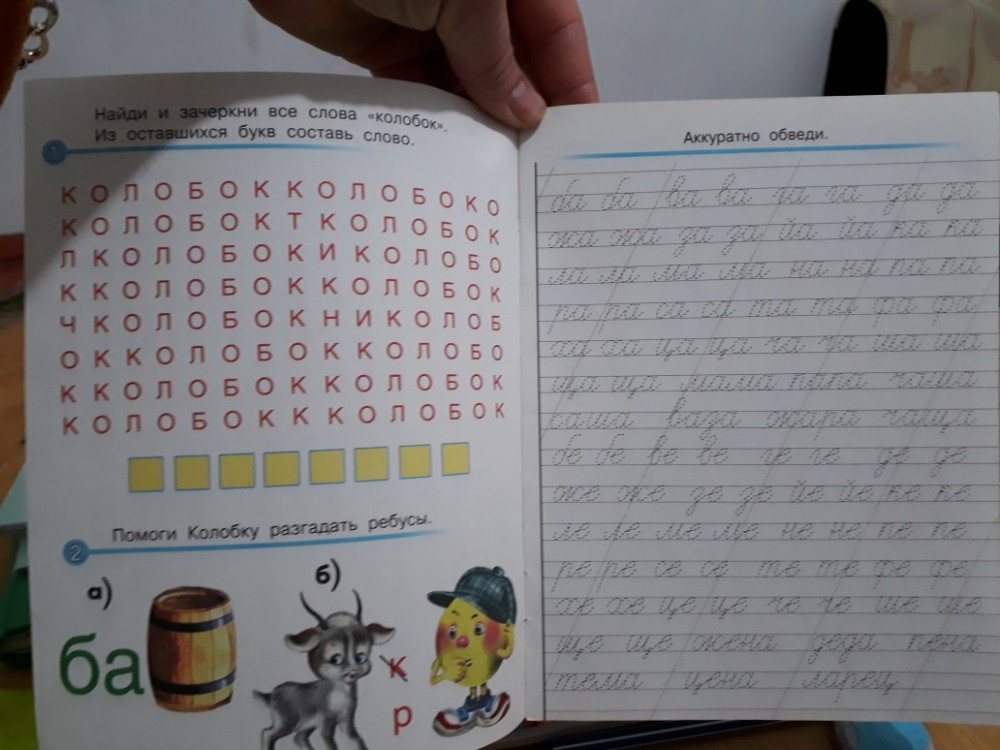 Найди и зачеркни все слова «колобок».
Из оставшихся букв составь слово.
1
К О Л О Б О К К О Л О Б О К О
К О Л О Б О К Т К О Л О Б О К
Л К О Л О Б О К И К О Л О Б О
К К О Л О Б О К К О Л О Б О К
Ч К О Л О Б О К Н И К О Л О Б
О К К О Л О Б О К К О Л О Б О
К К О Л О Б О К К О Л О Б О К
К О Л О Б О К К К О Л О Б О К
2
Помоги Колобку разгадать ребусы.
а)
ба
б)
к
р
Аккуратно обведи.
ба ба ва ва га га да да
жа жа за за йа йа ка ка
ла ла ма ма на на па па
ра ра са са та та фа фа
ха ха ца ца ча ча ша ша
ща ща мама папа чаша
каша ваза жара чаща
бе бе ве ве ге ге де де
же же зе зе йе йе ке ке
ле ле ме ме не не пе пе
ре ре се се те те фе фе
хе хе це це че че ше ше
ще ще жена деда пена
тема цена ларец